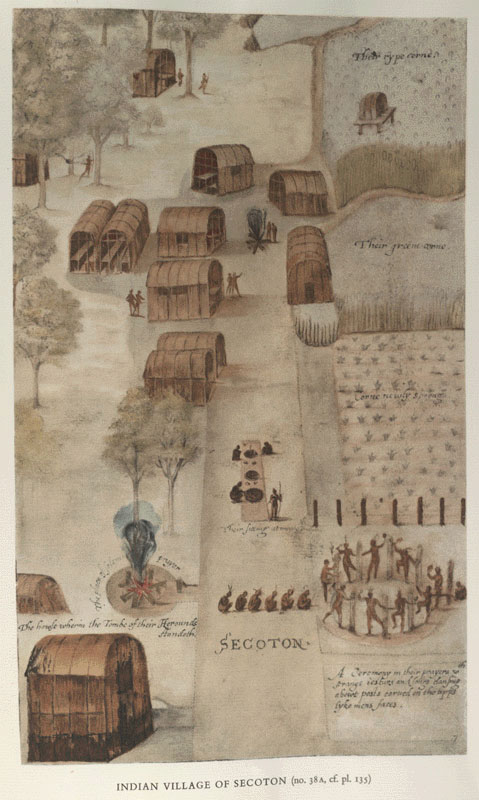 Their rype corne.
Their greene corne.
Corne newly sprong.
Their sitting at meate
The place of solemne prayer
The house wherin the Tombe of their Herounds
standeth.
SECOTON.
A Ceremony in their prayers wth
strange iesturs and songs dansing
abowt posts carued on the topps
lyke mens faces.
INDIAN VILLAGE OF SECOTON (no. 38A, cf. pl. 135)